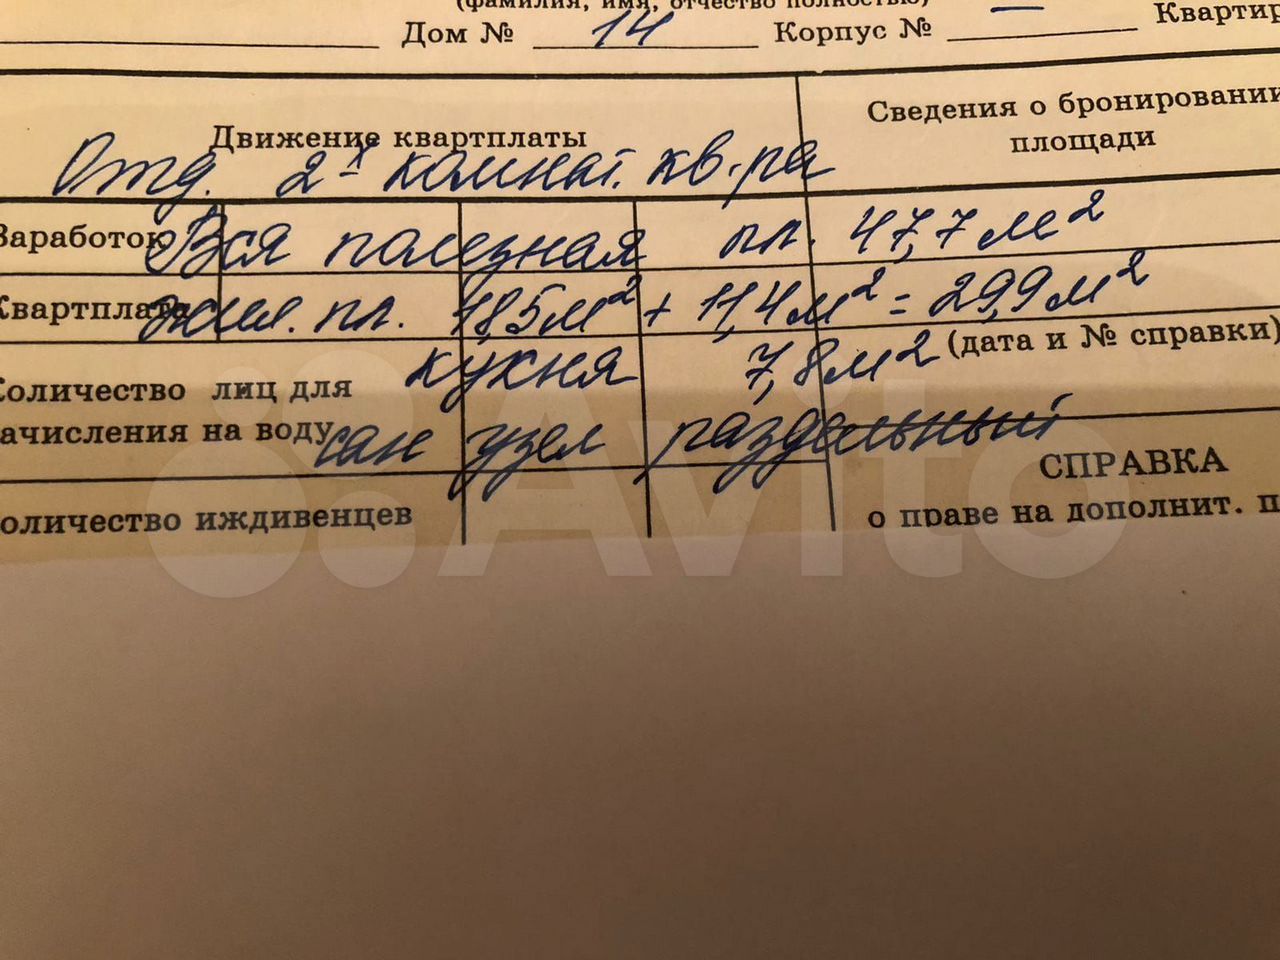 (фамилия, имя, отчество полностью)
Дом № 14 Корпус № — Квартир
Движение квартплаты
Сведения о бронировании
площади
Отд. 2-х комнат. кв-ра
Заработок
Вся полезная пл. 47,7 м²
Квартплата
жил. пл. 18,5 м² + 11,4 м² = 29,9 м²
(дата и № справки)
кухня 7,8 м²
Количество лиц для
ачисления на воду
сан узел раздельный
СПРАВКА
оличество иждивенцев
о праве на дополнит. п
Avito